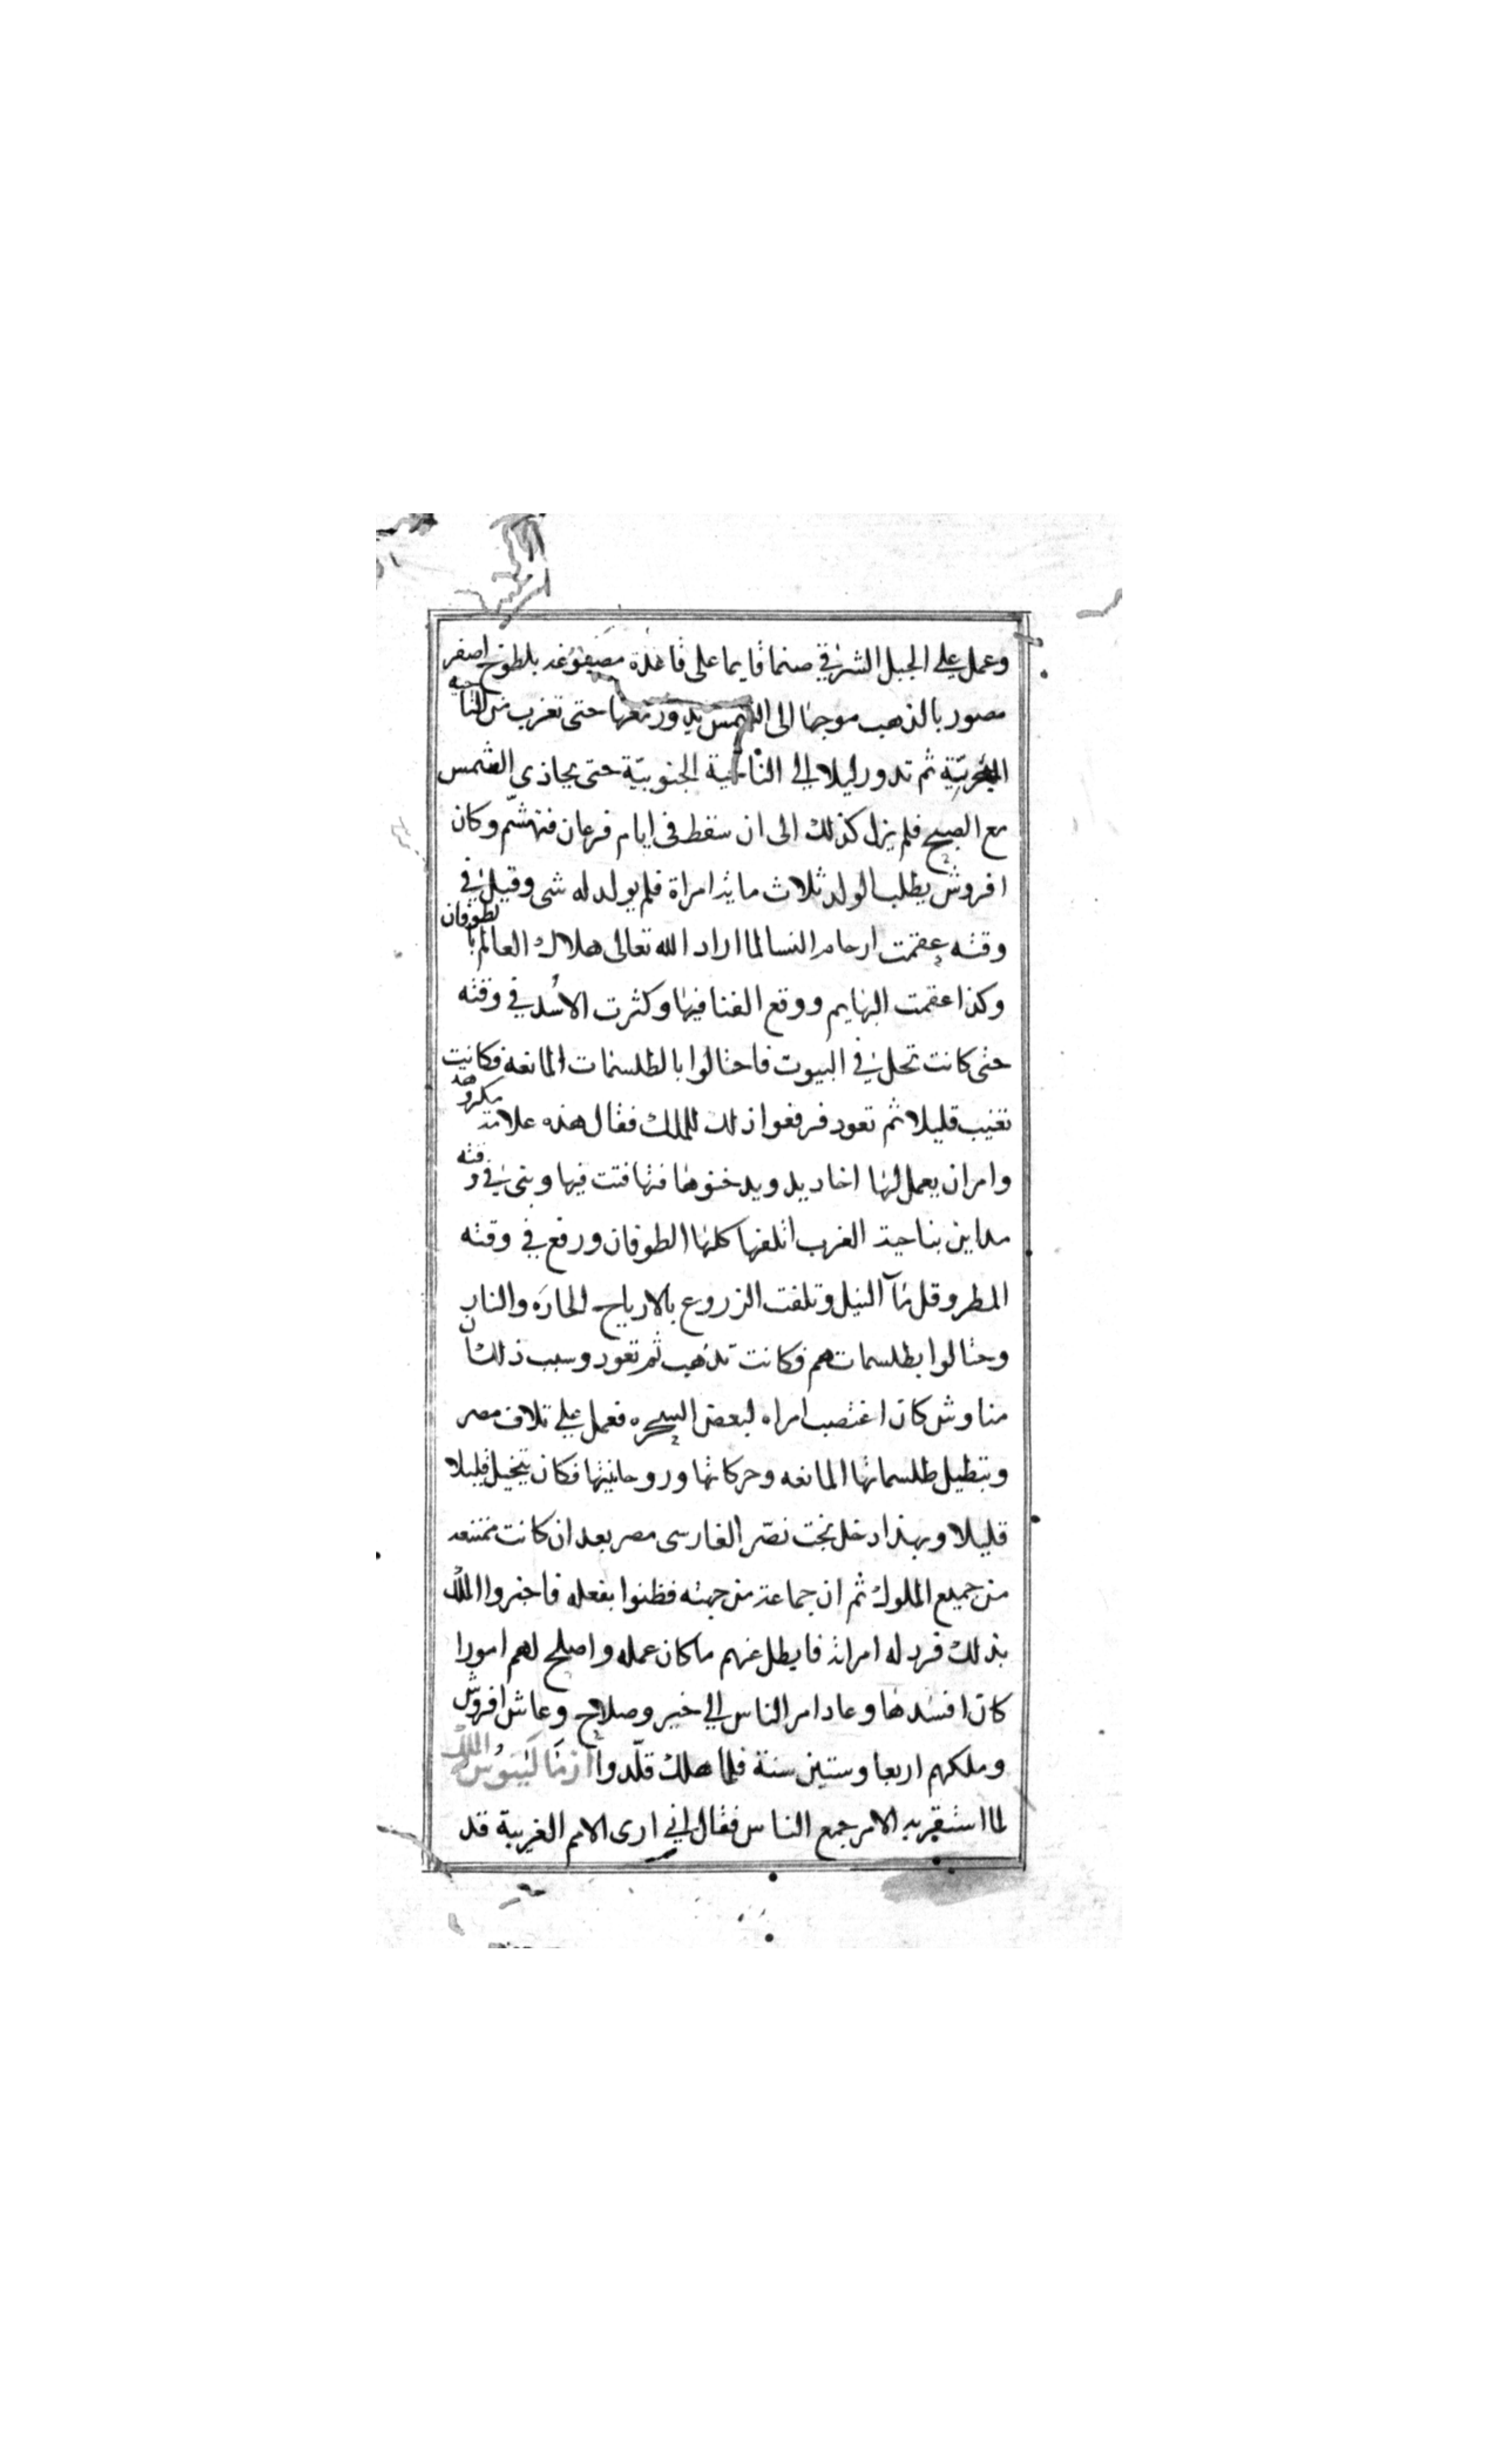 وعمل على الجبل الشرقي صنما قايما على قاعدة مصبوغه بلطوخ اصفر
مصور بالذهب موجها الى الشمس يدور معها حتى تغرب من الناحيه
الغربيّة ثم تدور ليلا الى الناحية الجنوبيّة حتى يحاذى الشمس
مع الصبح فلم يزل كذلك الى ان سقط فى ايام فرعان فتهشّم وكان
افروش يطلب الولد ثلاث ماية امراة فلم يولد له شى وقيل في
وقته عقمت ارحام النسا لما اراد الله تعالى هلاك العالم بالطوفان
وكذا عقمت البهايم ووقع الفنا فيها وكثرت الأُسد في وقته
حتى كانت تحل في البيوت فاحتالوا بالطلسمات المانعه فكانت
تغيب قليلا ثم تعود فرفعوا ذلك للملك فقال هذه علامة مكروهه
وامر ان يعمل لها اخاديد ويدخنوها فتهافتت فيها وبنى في وقته
مداين بناحية الغرب اتلفها كلها الطوفان ورفع في وقته
المطر وقل مآ النيل وتلفت الزروع بالارياح الحاره والنار
وحتالوا بطلسماتهم فكانت تذهب ثم تعود وسبب ذلك ان
مناوش كان اغتصب امراه لبعض السحره فعمل على تلاف مصر
وتبطيل طلسماتها المانعه وحركاتها وروحانيتها فكان يتخيل قليلا
قليلا وبهذا دخل بخت نصّر الفارسى مصر بعد ان كانت ممتنعه
من جميع الملوك ثم ان جماعة من جهته فظنوا بفعله فاخبروا الملك
بذلك فرد له امراته فابطل عنهم ما كان عمله واصلح لهم امورا
كان افسدها وعاد امر الناس الى خير وصلاح وعاش افروش
وملكهم اربعا وستين سنة فلما هلك قلّدوا ارمَالَيْنُوس الملك
لما استقر به الامر جمع الناس فقال اني ارى الامم الغريبة قد